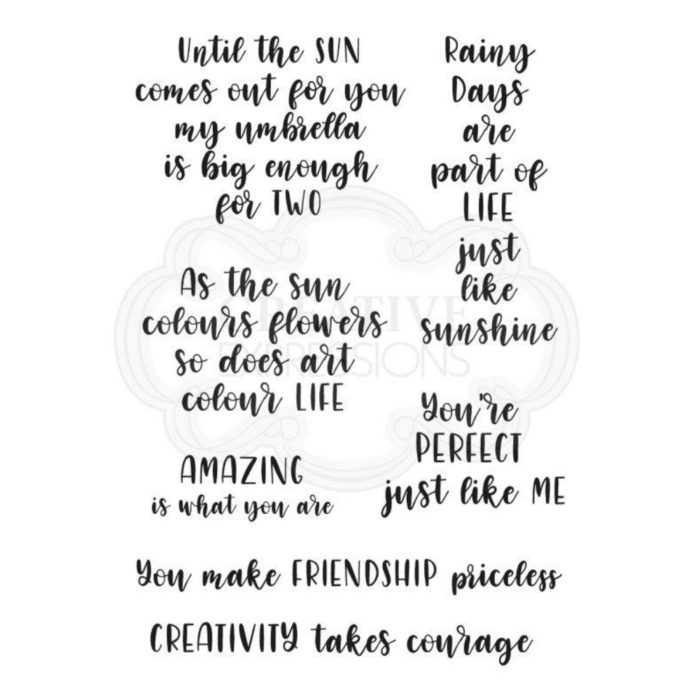 Until the SUN
comes out for you
my umbrella
is big enough
for TWO
Rainy
Days
are
part of
LIFE
just
like
sunshine
As the sun
colours flowers
so does art
colour LIFE
You're
PERFECT
just like ME
AMAZING
is what you are
You make FRIENDSHIP priceless
CREATIVITY takes courage
CREATIVE
EXPRESSIONS